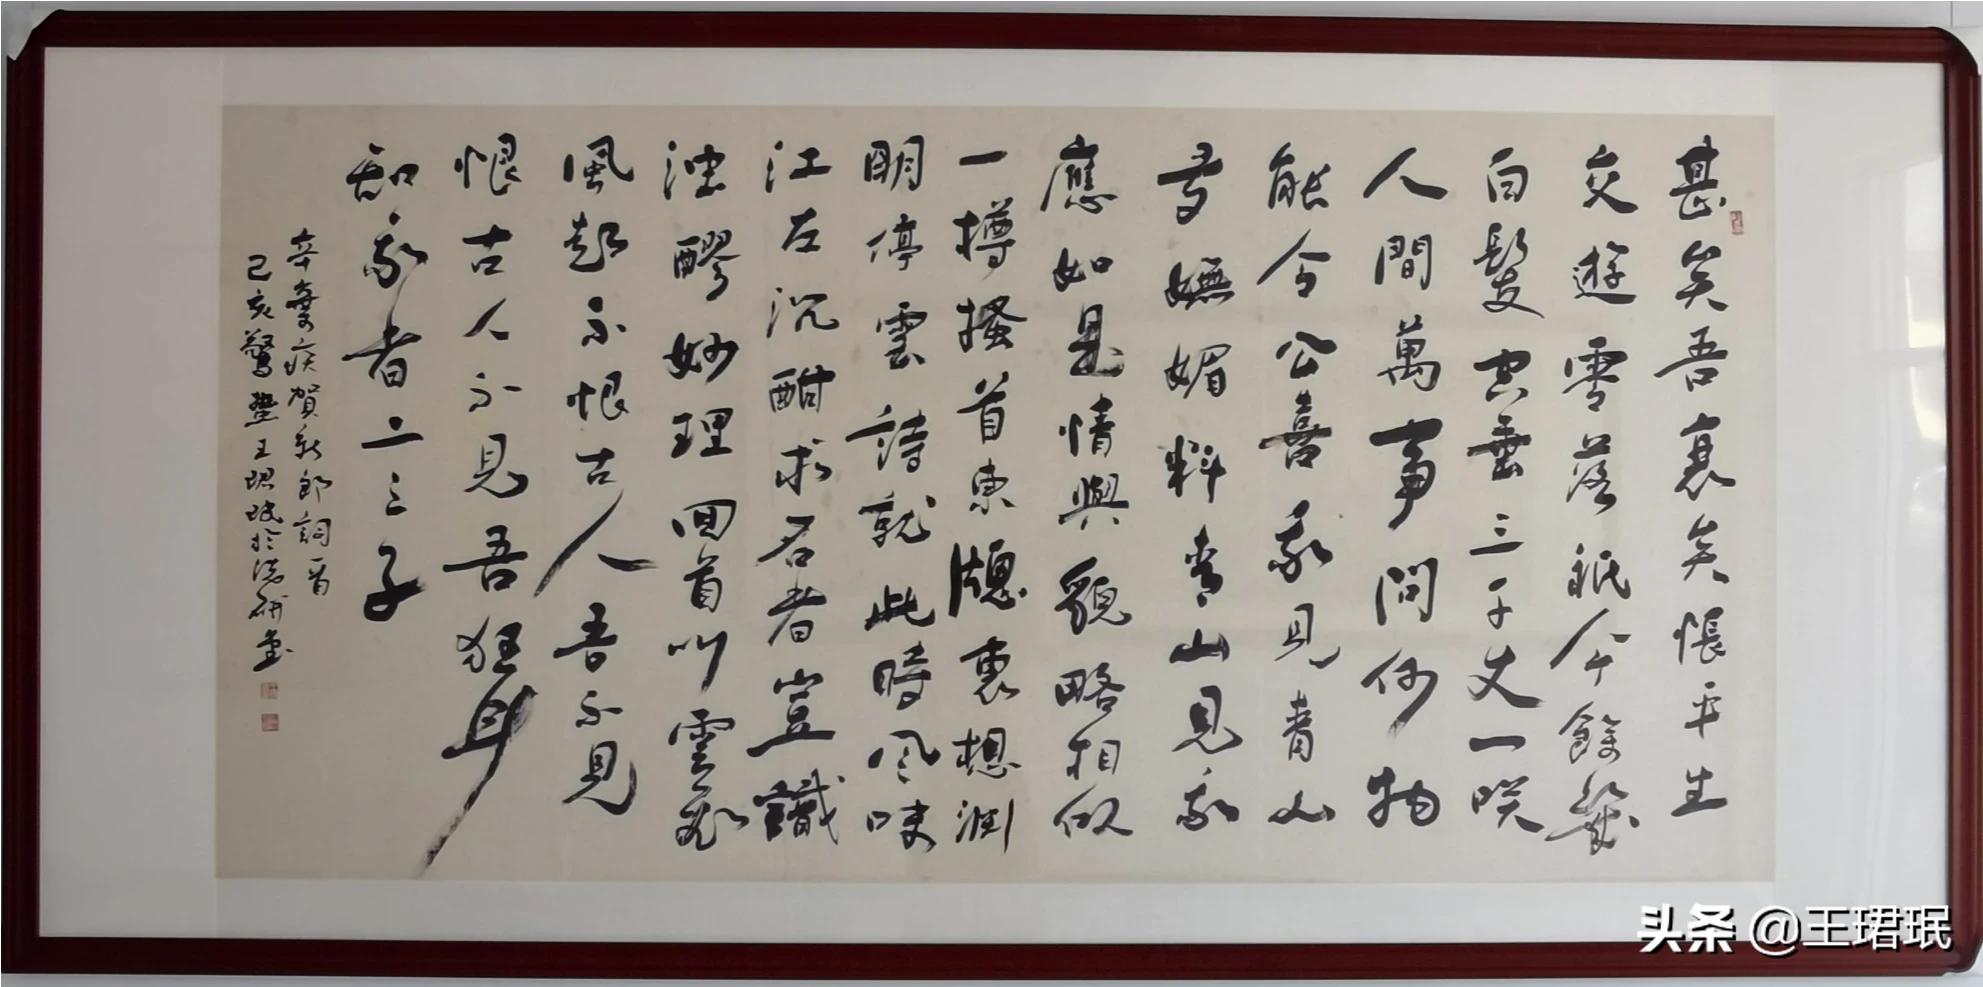 甚矣吾衰矣悵平生
交遊零落祇今餘幾
白髮空垂三千丈一笑
人間萬事問何物
能令公喜我見青山
多嫵媚料青山見我
應如是情與貌略相似
一樽搔首東牕裏想淵
明停雲詩就此時風味
江左沉酣求名者豈識
濁醪妙理回首叫雲飛
風起不恨古人吾不見
恨古人不見吾狂耳
知我者二三子
辛棄疾賀新郎詞一首
己亥驚蟄王珺珉於研堂
头条 @王珺珉